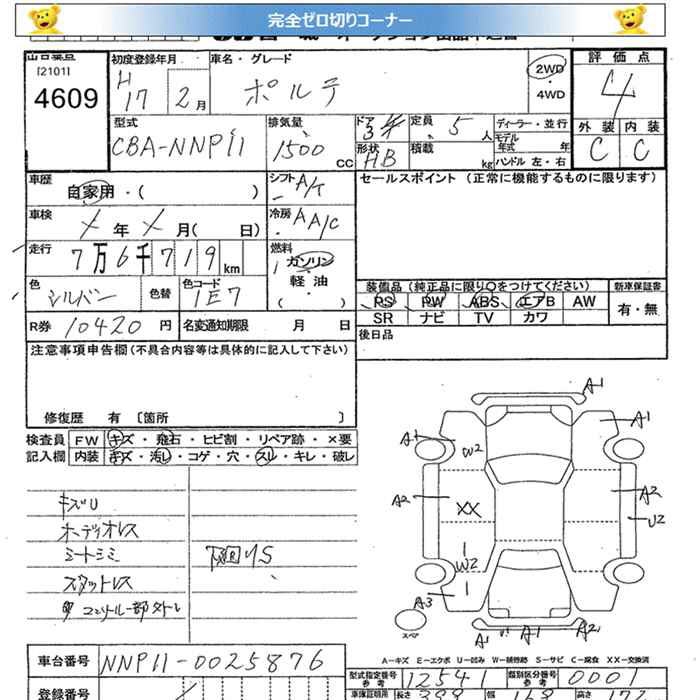 完全ゼロ切りコーナー
[2101]
4609
初度登録年月
H
17 2月
車名・グレード
ポルテ
2WD
・
4WD
評価点
4
外装 内装
C C
型式
CBA-NNP11
排気量
1500 cc
ドア
3
形状
HB
定員
5 人
積載
kg
ディーラー・並行
モデル
年式 年
ハンドル 左・右
車歴
自家用・( )
シフト
A/T
セールスポイント (正常に機能するものに限ります)
車検
年 月( 日)
冷房
AA/C
走行
7万6千719km
燃料
ガソリン
軽油
( )
色
シルバー
色替
色コード
1E7
装備品(純正品に限り○をつけてください)
PS PW ABS エアB AW
SR ナビ TV カワ
新車保証書
有・無
R券 10420円
名変通知期限 月 日
後日品
注意事項申告欄(不具合内容等は具体的に記入して下さい)
修復歴 有 〔箇所 〕
検査員
記入欄
FW キズ・飛石・ヒビ割・リペア跡・×要
内装 キズ・汚し・コゲ・穴・スレ・キレ・破レ
キズU
オーディオレス
シートシミ
スタットレス
下廻りS
A1
A1
A1
W2
A2
XX
A2
U2
W2
A3
A1
A1
A2
スペア
A-キズ E-エクボ U-凹み W-補修跡 S-サビ C-腐食 XX-交換済
車台番号 NNP11-0025876
型式指定番号
参考
12541
類別区分番号
参考
0001
登録番号
車庫証明用
長さ
幅